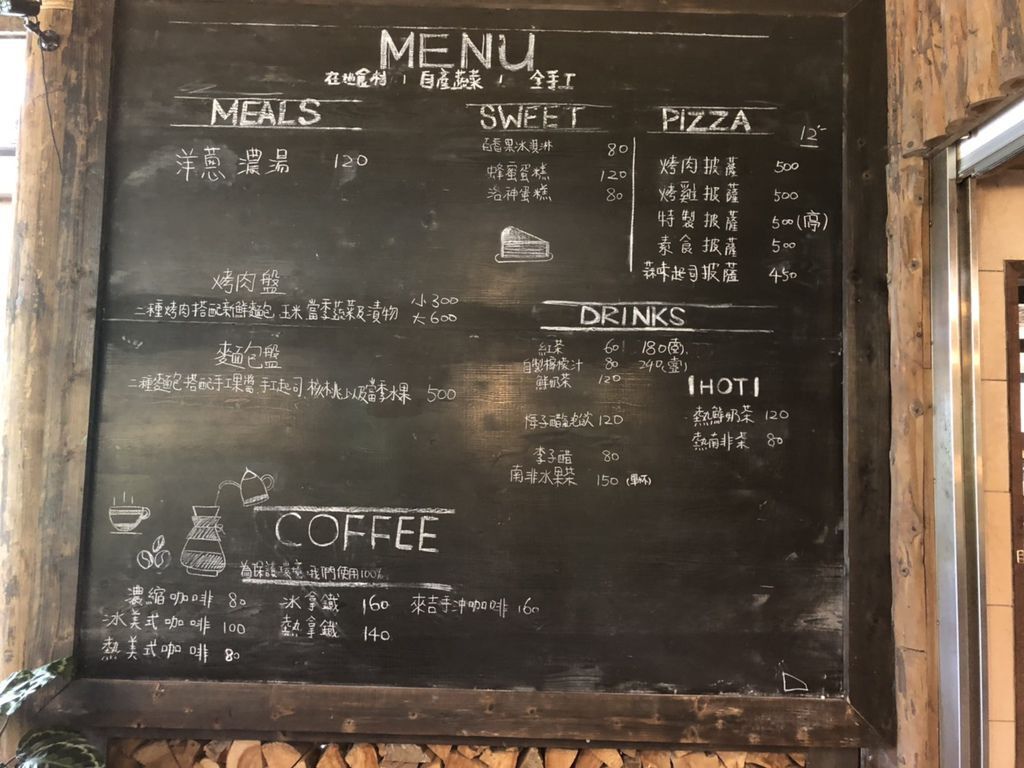 MENU
在地食材 / 自産蔬菜 / 全手工
MEALS
洋蔥 濃湯 120
烤肉盤
二種烤肉搭配新鮮麵包、玉米、當季蔬菜及漬物 小300 大600
麵包盤
二種麵包搭配手工果醬、手工起司、核桃以及當季水果 500
SWEET
百香果冰淇淋 80
蜂蜜蛋糕 120
洛神蛋糕 80
PIZZA 12"
烤肉披薩 500
烤雞披薩 500
特製披薩 500(停)
素食披薩 500
蒜味起司披薩 450
DRINKS
紅茶 60 180(壺)
自製檸檬汁 80 240(壺)
鮮奶茶 120
梅子醋氣泡飲 120
李子醋 80
南非水果茶 150 (單杯)
HOT
熱鮮奶茶 120
熱南非茶 80
COFFEE
為保護環境,我們使用100%
濃縮咖啡 80
冰美式咖啡 100
熱美式咖啡 80
冰拿鐵 160
熱拿鐵 140
來吉手沖咖啡 160